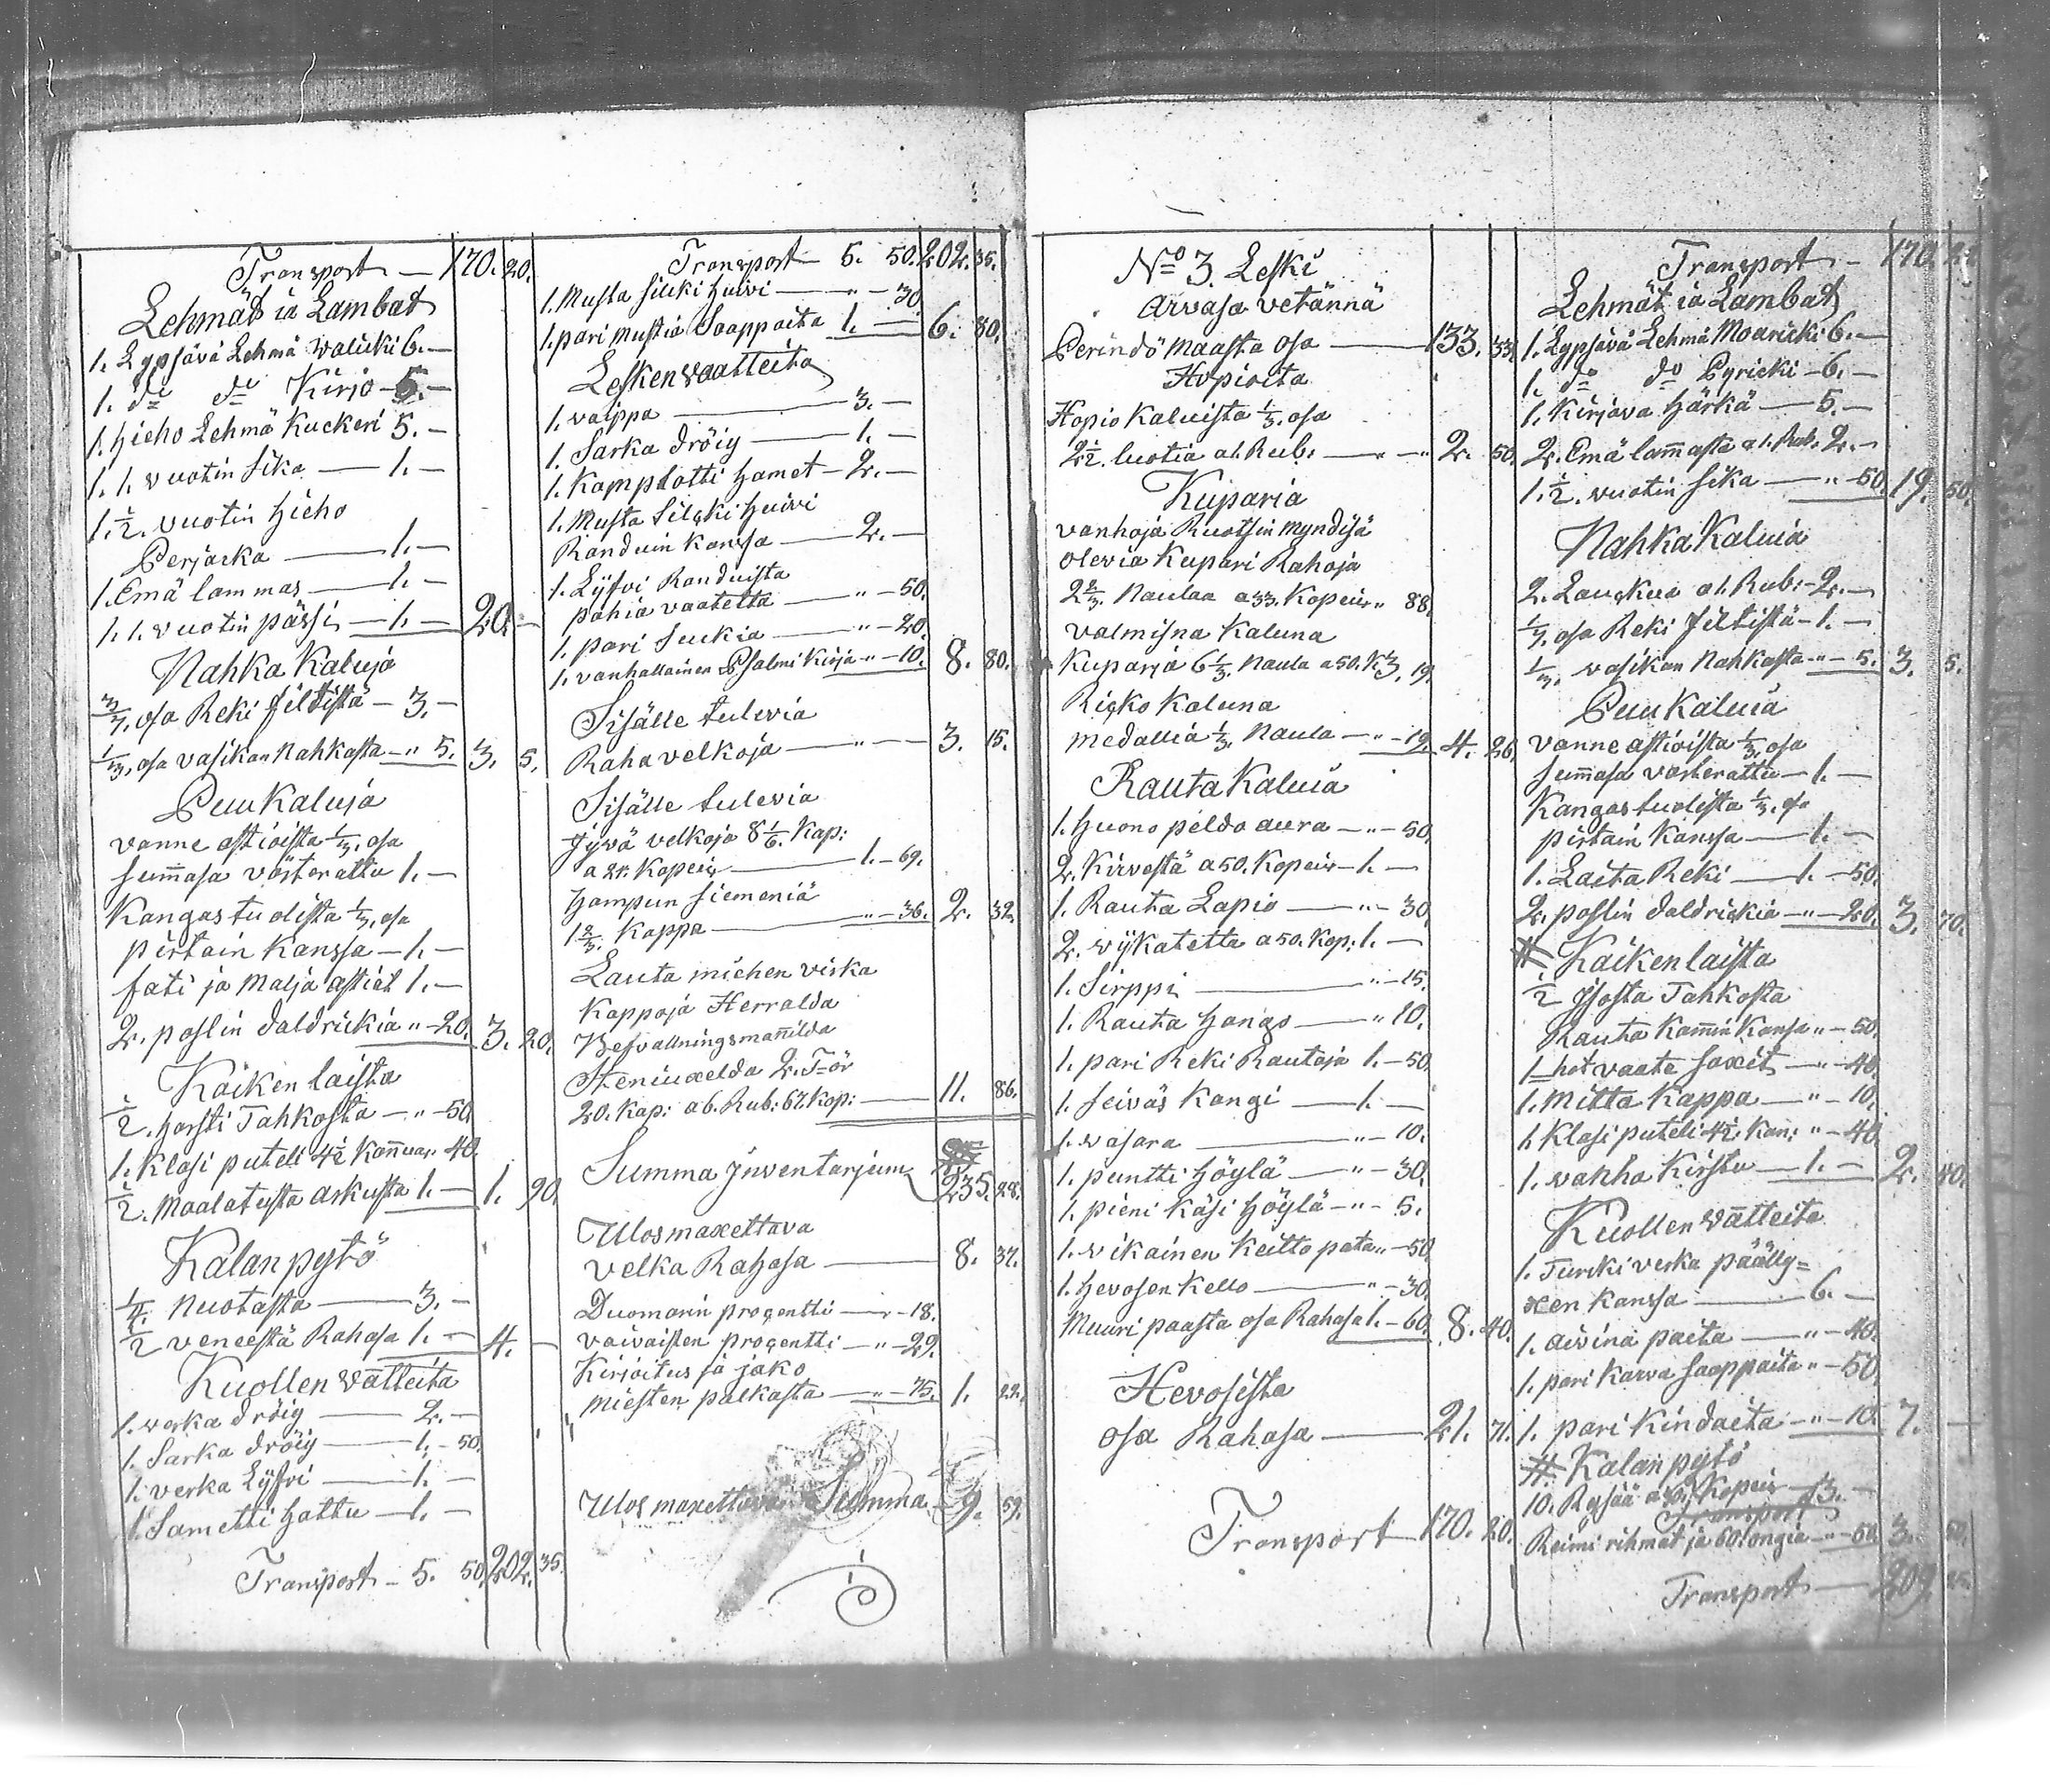 Transport — 170. 20.
Lehmät ia Lambat
1. Lypsävä Lehmä Walicki 6. —
1. do do Kirjo — 5. —
1. Hieho Lehmä Kuckeri 5. —
1. 1. vuotin Sika — 1. —
1. ½. vuotin Hieho
Perjacka — 1. —
1. Emä lammas — 1. —
1. 1. vuotin pässi — 1. — 20. —
Nahka Kaluja
3/7. osa Reki Filtistä — 3. —
1/3. osa vasikan Nahkasta — " 5. 3. 5.
Puu Kaluja
vanne astioista 1/3. osa
sum̄asa västerattu 1. —
Kangastuolista 1/3. osa
pirtain Kanssa — 1. —
fati ja Malja astiat 1. —
2. poslin daldrickia " — 20. 3. 20.
Kaiken laista
½. Horsti Tahkosta — " — 50.
1. Klasi puteli 4½ Kan̄uar. 40.
½. Maalatusta arkusta 1. — 1. 90.
Kalan pytö
¼. Nuotasta — 3. —
½ veneestä Rahasa 1. — 4. —
Kuollen Vatteita
1. verka dröig — 2. —
1. Sarka dröig — 1. — 50.
1. verka Lÿfvi — 1. —
1. Sametti Hattu — 1. —
Transport — 5. 50. 202. 35.
Transport — 5. 50. 202. 35.
1. Musta silcki Huivi — " — 30.
1. pari mustia Saappaita 1. — 6. 80.
Lesken vaatteita
1. vaippa — 3. —
1. Sarka dröig — 1. —
1. Kamplotti Hamet — 2. —
1. Musta Silcki Huivi
Randuin Kanssa — 2. —
1. Lÿfvi Randuista
pahia vaatetta — " — 50.
1. pari Suckia — " — 20.
1. vanhallainen Psalmi Kirja " — 10. 8. 80.
Sisälle tulevia
Raha velkoja — " — 3. 15.
Sisälle tulevia
Jÿvä velkoja 8 1/6. Kap:
a 21. Kopeis — 1. — 69.
Hampun Siemeniä
1 2/3. Kappa — " — 36. 2. 32.
Lauta miehen virka
Kappoja Herralda
Befvallningsman̄ilda
Steniuxelda 2. T=ör
20. Kap: a 6. Rub: 67. Kop: — 11. 86.
Summa Inventarium 235. 28.
Ulosmaxettava
velka Rahasa — 8. 37.
Duomarin progentti — " — 18.
vaivaisten progentti — " — 29.
Kirjoitus ja jako
miesten palkasta — " — 75. 1. 22.
Ulos maxettavan Summa — 9. 59.
No 3. Leski
arvasa vetännä
Perindö Maasta osa — 133. 33.
Hopioita
Hopio Kaluista 1/3. osa
2½. luotia a 1. Rub: — " — 2. 50.
Kuparia
vanhoja Ruotsin Myndijä
olevia Kupari Rahoja
2 2/3. Naulaa a 33. Kopeis " 88.
valmisna Kaluna
Kuparja 6 1/3. Naula a 50. K. 3. 19.
Ricko Kaluna
Medallia 1/3. Naula — " — 19. 4. 26.
Rauta Kaluia
1. Huono peldo aura — " — 50.
2. Kirvestä a 50. Kopeis — 1. —
1. Rauta Lapio — " — 30.
2. vÿkatetta a 50. Kop: 1. —
1. Sirppi — " — 15.
1. Rauta Hango — " 10.
1. pari Reki Rautoja 1. — 50.
1. seiväs Kangi — 1. —
1. vasara — " — 10.
1. puntti Höylä — " — 30.
1. pieni Käsi Höylä — " — 5.
1. vikainen Keitto pata " — 50.
1. Hevosen Kello — " — 30.
Muuri paasta osa Rahasa 1. — 60. 8. 40.
Hevosista
osa Rahasa — 21. 71.
Transport — 170. 20.
Transport — 170. 20.
Lehmät ia Lambat
1. Lypsävä Lehmä Moaricki 6. —
1. do do Pyricki — 6. —
1. Kirjava Härkä — 5. —
2. Emä lam̄asta a 1. Rub. 2. —
1. ½. vuotin Sika — " — 50. 19. 50.
Nahka Kaluia
2. Lauckua a 1. Rub: — 2. —
1/7. osa Reki Filtistä — 1. —
1/3. vasikan Nahkasta — " — 5. 3. 5.
Puu Kaluia
vanne astioista 1/3. osa
sum̄asa västerattu — 1. —
Kangastuolista 1/3. osa
pirtain Kanssa — 1. —
1. Laita Reki — 1. — 50.
2. poslin daldrickia — " — 20. 3. 70.
# Kaikenlaista
½ Isosta Tahkosta
Rauta Kam̄in Kansa " — 50.
1 — het vaate saxet — " — 40.
1. Mitta Kappa — " — 10.
1. Klasi puteli 4½. Kan: " — 40.
1. vanha Kirstu — 1. — 2. 40.
Kuollen Vatteita
1. Turcki verka päälly=
xen Kanssa — 6. —
1. aivina paita — " — 40.
1. pari Karva Saappaita " — 50.
1. pari Kindaita — " — 10. 7. —
# Kalan pytö
10. Rysää a 30. Kopeis — 3. —
Transport
Reimi rihmat ja 60. ongia — " — 50. 3. 50.
Transport — 209.